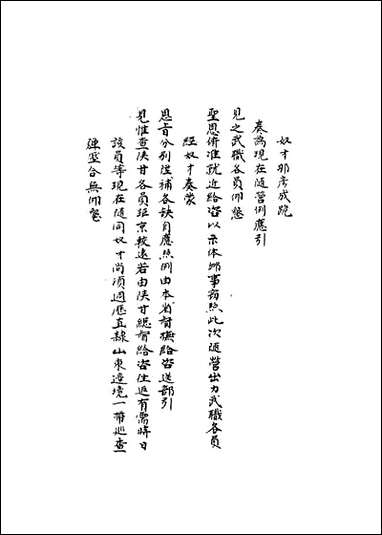 奴才那彥成跪
奏為現在隨營例應引
見之武職各員仰懇
聖恩俯准就近給咨以示体卹事竊照此次隨營出力武職各員
經奴才奏蒙
恩旨分別陞補各缺自應照例由本省督撫給咨送部引
見惟查陝甘各員距京較遠若由陝甘總督給咨往返有需時日
該員等現在隨同奴才尚須週歷直隸山東邊境一帶巡查
連塞合無仰懇